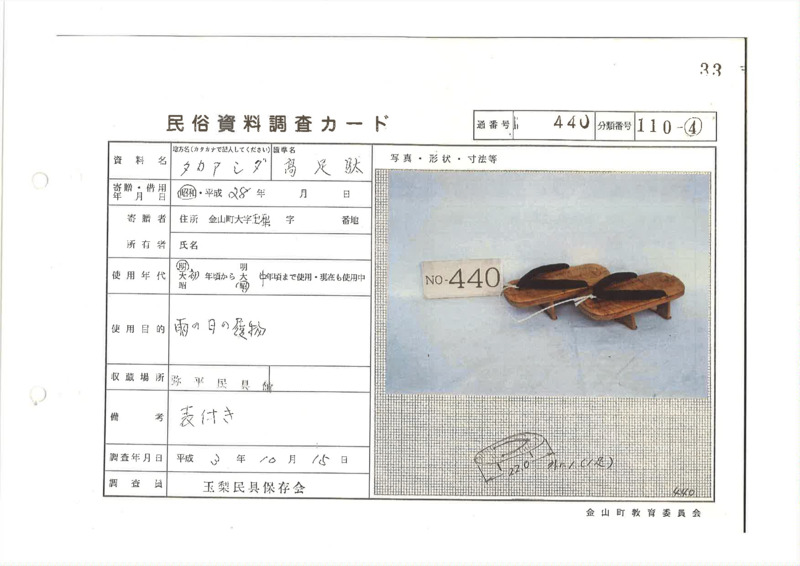 33
民俗資料調査カード
通番号 440 分類番号 110-④
資料名 地方名(カタカナで記入してください) タカアシダ 標準名 高足駄
写真・形状・寸法等
寄贈・借用年月日 昭和・平成 28年 月 日
寄贈者 住所 金山町大字玉梨 字 番地
所有者 氏名
使用年代 明 大 昭 初 年頃から 明 大 昭 中 年頃まで使用・現在も使用中
NO-440
使用目的 雨の日の履物
収蔵場所 弥平民具館
備考 表付き
22.0 (1足)
調査年月日 平成 3年 10月 15日
調査員 玉梨民具保存会
440
金山町教育委員会